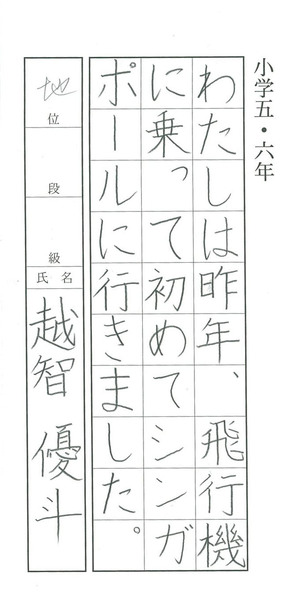 小学五・六年
わたしは昨年、飛行機
に乗って初めてシンガ
ポールに行きました。
地
位
段
級
氏名
越智 優斗